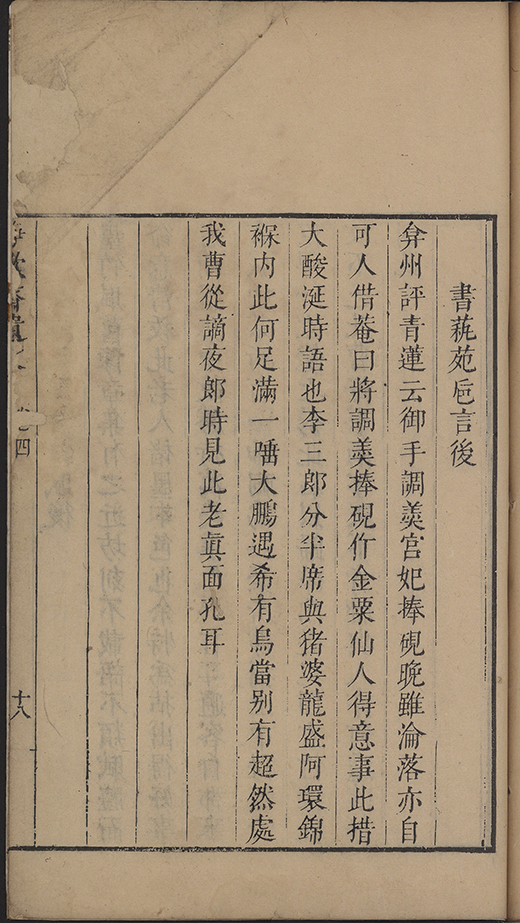 書蓺苑巵言後
弇州評青蓮云御手調羮宫妃捧硯晚雖淪落亦自
可人借菴曰將調羮捧硯作金粟仙人得意事此措
大酸涎時語也李三郎分半席與猪婆龍盛阿環錦
褓内此何足滿一噃大鵬遇希有鳥當别有超然處
我曹從謫夜郎時見此老眞面孔耳
四
十八